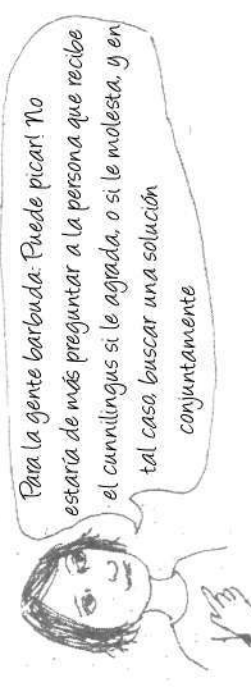 Para la gente barbuda: Puede picar! No
estaría de más preguntar a la persona que recibe
el cunnilingus si le agrada, o si le molesta, y en
tal caso, buscar una solución
conjuntamente